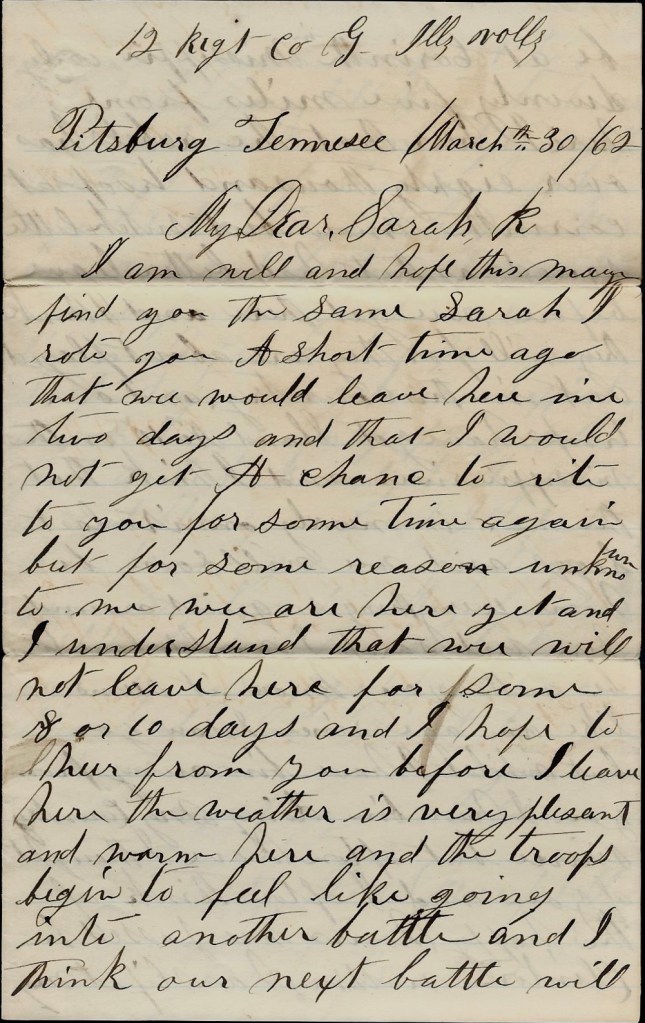 12 Regt Co G. Ills volls
Pitsburg Tennesee March th 30 /62
My Dear, Sarah K
I am well and hope this may
find you the same Sarah I
rote you A short time ago
that wee would leave here ine
two days and that I would
not get A chanc to rite
to you for some time again
but for some reason unknown
to me wee are here yet and
I understand that wee will
not leave here for some
8 or 10 days and I hope to
heur from you before I leave
here the weather is very plesant
and warm here and the troops
begin to feel like going
into another battle and I
think our next battle will